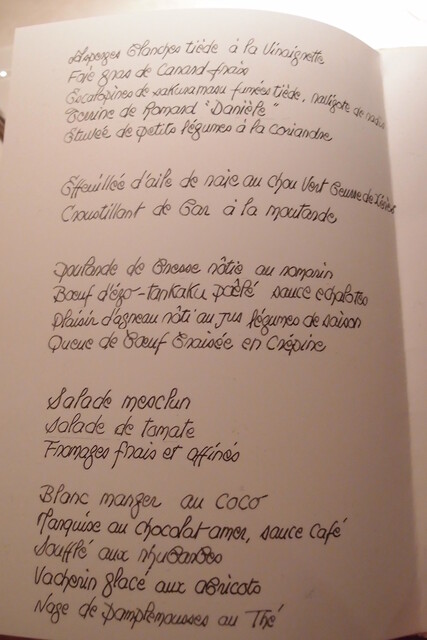 Asperges blanches tiède à la Vinaigrette
Foie gras de Canard frais
Escalopines de sakuramasu fumées tiède, ravigote de radis
Terrine de Homard "Danièle"
Etuvée de petits légumes à la coriandre
Effeuillée d'aile de raie au chou Vert
Croustillant de Bar à la moutarde
Poularde de Bresse rôtie au romarin
Bœuf d'ézo-tankaku poêlé sauce echalotes
Plaisir d'agneau rôti au jus légumes de saison
Queue de Bœuf Braisée en Crépine
Salade mesclun
Salade de tomate
Fromages frais et affinés
Blanc manger au coco
Marquise au chocolat amer, sauce Café
Soufflé aux rhubarbes
Vacherin glacé aux abricots
Nage de Pamplemousses au Thé